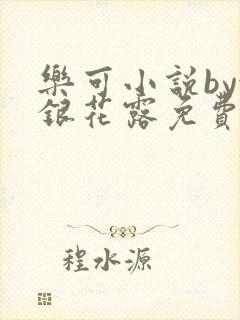 樂可小說by
銀花露免費
程水源